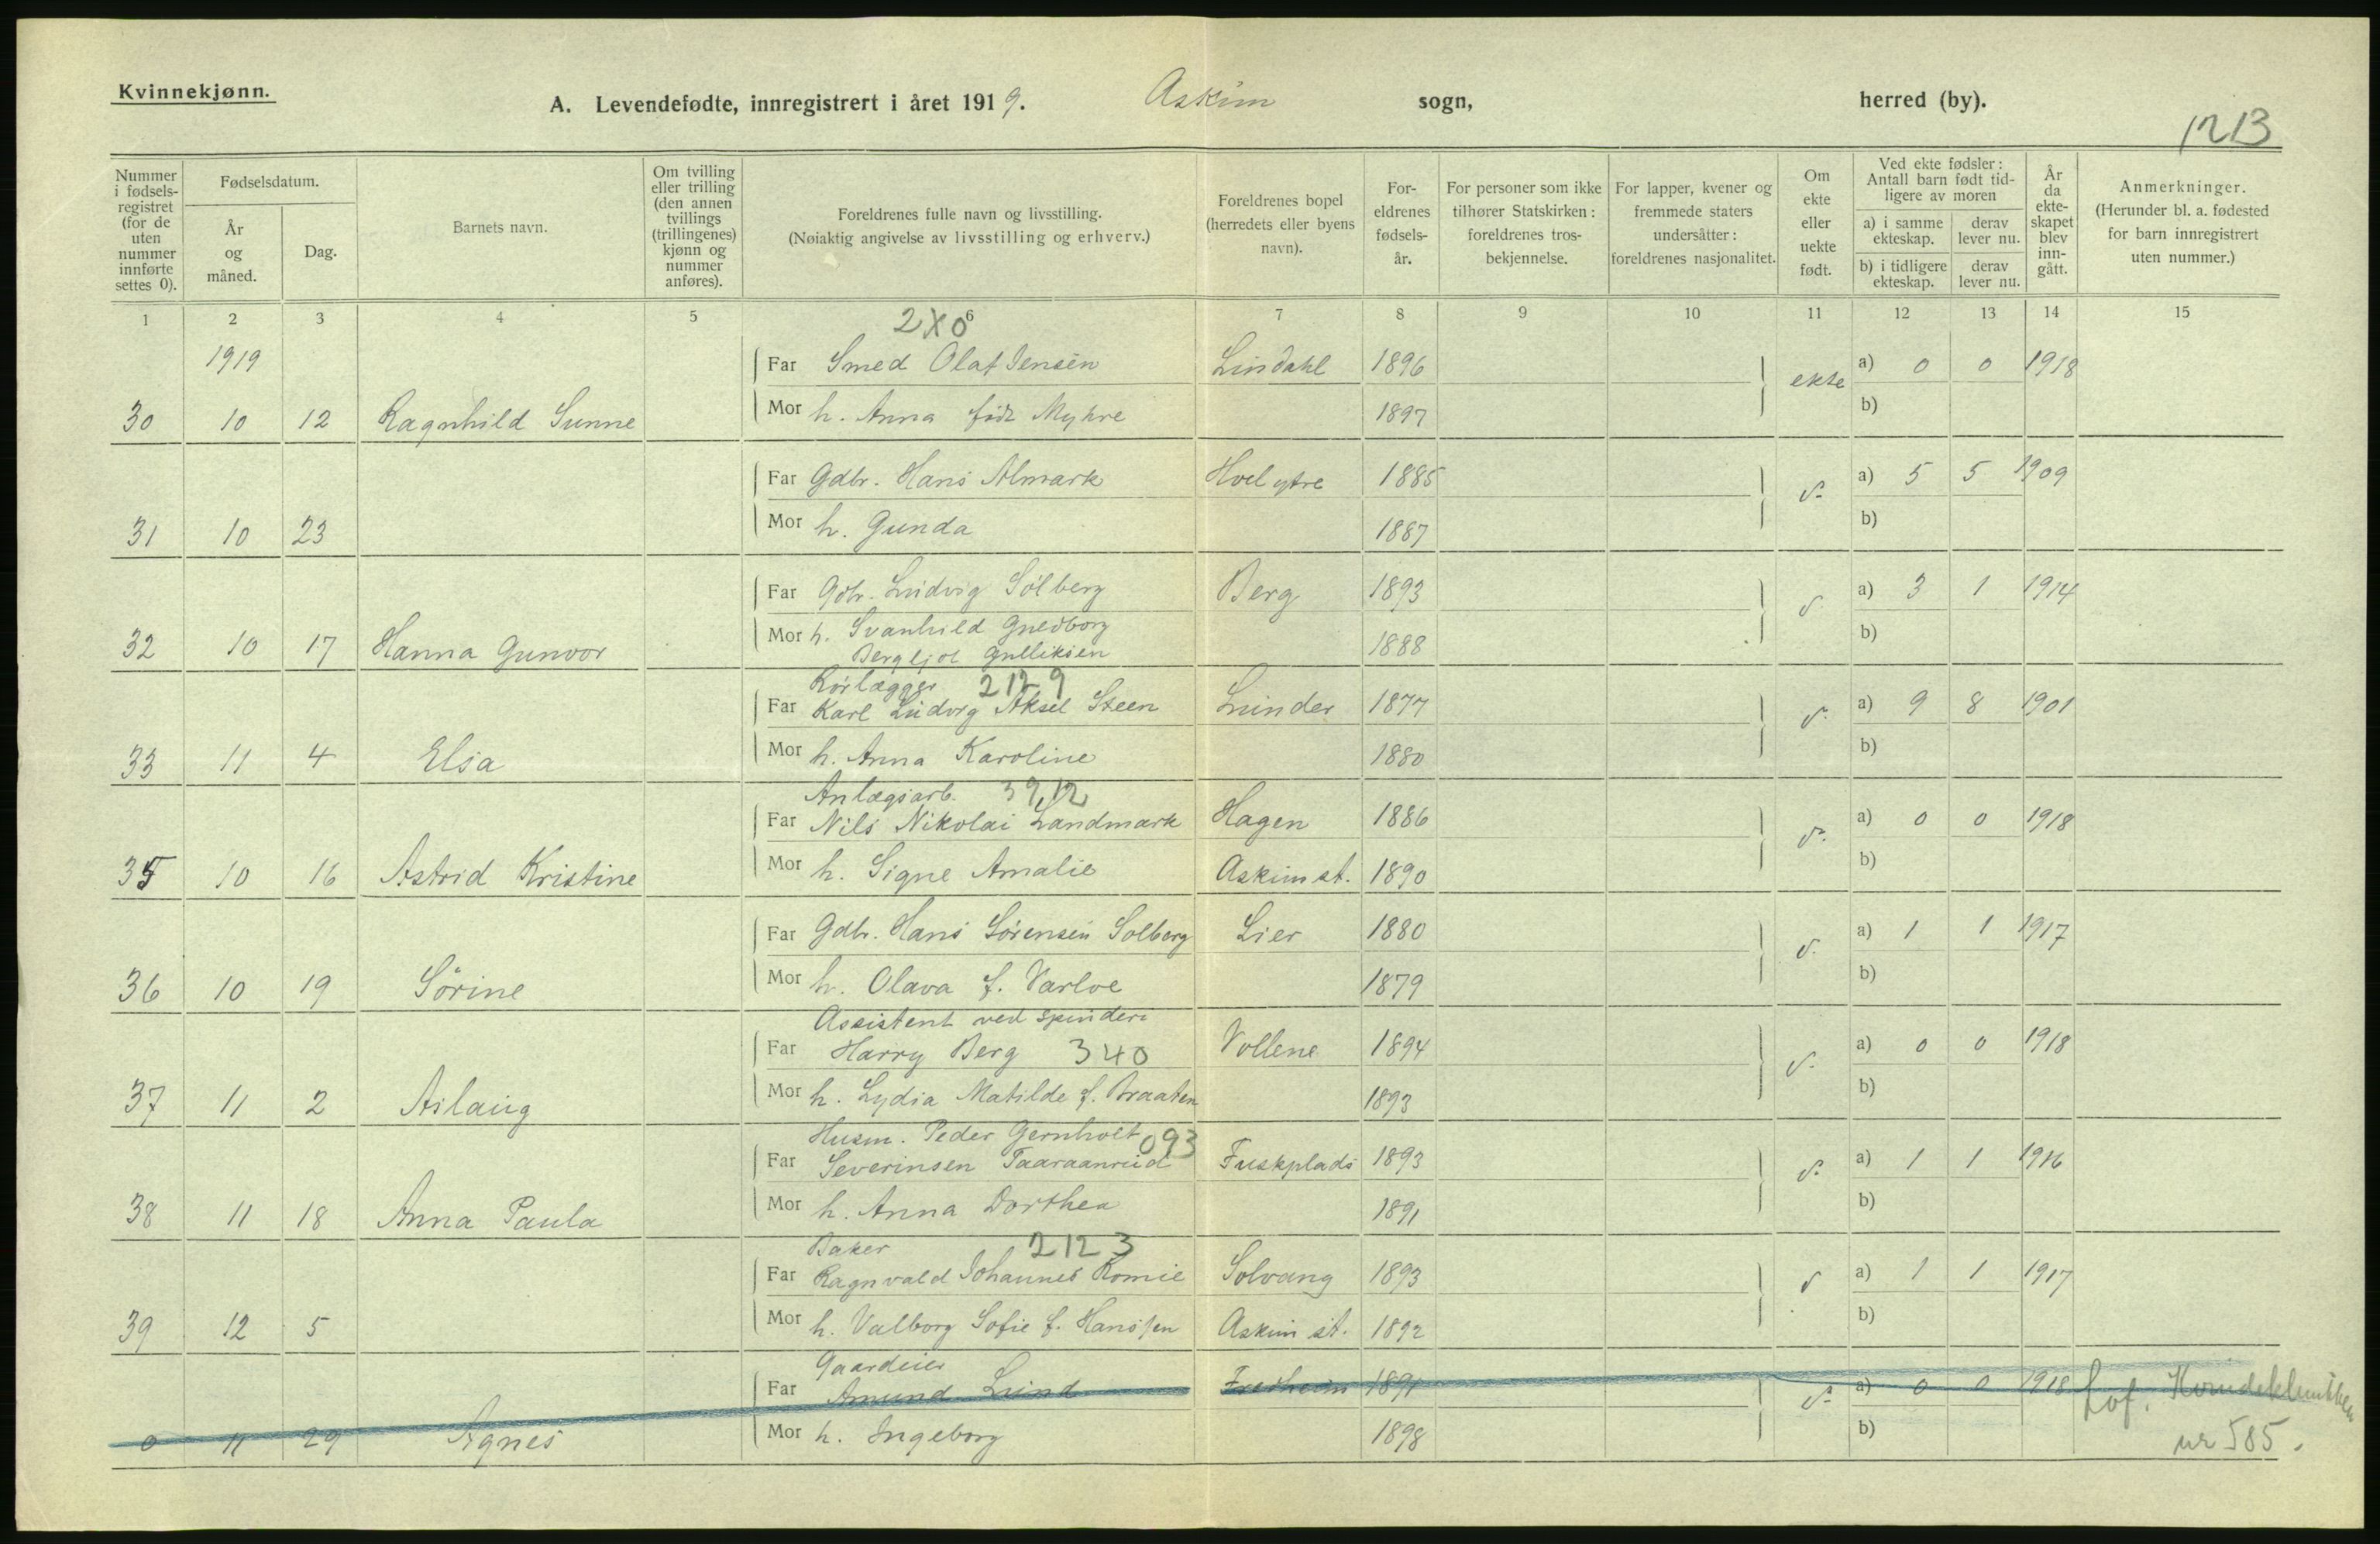 Kvinnekjønn.
A. Levendefødte, innregistrert i året 1919. Askim sogn, herred (by).
1213
Nummer i fødselsregistret (for de uten nummer innførte settes 0).
Fødselsdatum.
År og måned.
Dag.
Barnets navn.
Om tvilling eller trilling (den annen tvillings (trillingenes) kjønn og nummer anføres).
Foreldrenes fulle navn og livsstilling.
(Nøiaktig angivelse av livsstilling og erhverv.)
Foreldrenes bopel (herredets eller byens navn).
For-eldrenes fødsels-år.
For personer som ikke tilhører Statskirken: foreldrenes tros-bekjennelse.
For lapper, kvener og fremmede staters undersåtter: foreldrenes nasjonalitet.
Om ekte eller uekte født.
Ved ekte fødsler: Antall barn født tid-ligere av moren
a) i samme ekteskap. derav lever nu.
b) i tidligere ekteskap. derav lever nu.
År da ekte-skapet blev inn-gått.
Anmerkninger.
(Herunder bl. a. fødested for barn innregistrert uten nummer.)
1 2 3 4 5 6 7 8 9 10 11 12 13 14 15
2X0
1919
Far Smed Olaf Jensen Lindahl 1896 ekte a) 0 0 1918
30 10 12 Ragnhild Sunne Mor h. Anna født Myhre 1897 b)
Far Gdbr. Hans Almark Hoel ytre 1885 a) 5 5 1909
31 10 23 Mor h. Gunda 1887 b)
Far Gdbr. Ludvig Solberg Berg 1893 a) 3 1 1914
32 10 17 Hanna Gunvor Mor h. Svanhild Gnedborg 1888 b)
Bergljot Gulliksen
Rørlægger 2129
Far Karl Ludvig Aksel Steen Lunder 1877 a) 9 8 1901
33 11 4 Elsa Mor h. Anna Karoline 1880 b)
Anlægsarb. 3912
Far Nils Nikolai Landmark Hagen 1886 a) 0 0 1918
35 10 16 Astrid Kristine Mor h. Signe Amalie Askim st. 1890 b)
Far Gdbr. Hans Sørensen Solberg Lier 1880 a) 1 1 1917
36 10 19 Sörine Mor h. Olava f. Varloe 1879 b)
Assistent ved spinderi
Far Harry Berg 340 Vollene 1894 a) 0 0 1918
37 11 2 Aslaug Mor h. Lydia Matilde f. Braaten 1893 b)
Husm. Peder Gernholt 093
Far Severinsen Taaraanrud Fuskplads 1893 a) 1 1 1916
38 11 18 Anna Paula Mor h. Anna Dorthea 1891 b)
Baker 2123
Far Ragnvald Johannes Romie Solvang 1893 a) 1 1 1917
39 12 5 Mor h. Valborg Sofie f. Hanssen Askim st. 1892 b)
Gaardeier
Far Amund Lund Fredheim 1891 a) 0 0 1918
0 11 29 Agnes Mor h. Ingeborg 1898 b)
nr 585.